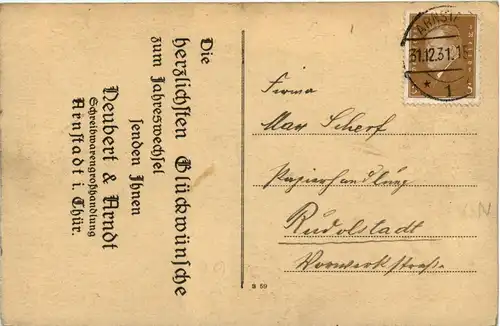 Die
herzlichsten Glückwünsche
zum Jahreswechsel
senden Ihnen
Neubert & Arndt
Schreibwarengroßhandlung
Arnstadt i. Thür.
ARNSTA
31.12.31.
* 1
Firma
Max Scherf
Papierhandlung
Rudolstadt
Vorwerkstraße
S 59